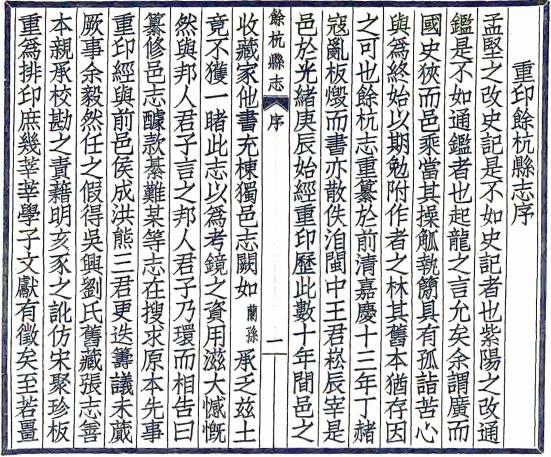 重印餘杭縣志序
孟堅之改史記是不如史記者也紫陽之改通
鑑是不如通鑑者也起龍之言允矣余謂廣而
國史狹而邑乘當其操觚執簡具有孤詣苦心
與爲終始以期勉附作者之林其舊本猶存因
之可也餘杭志重纂於前清嘉慶十三年丁赭
寇亂板燬而書亦散佚洎閩中王君崧辰宰是
邑於光緒庚辰始經重印歷此數十年間邑之
餘杭縣志
序
一
收藏家他書充棟獨邑志闕如蘭孫承乏兹土
竟不獲一睹此志以爲考鏡之資用滋大憾慨
然與邦人君子言之邦人君子乃環而相告曰
纂修邑志醵款綦難某等志在搜求原本先事
重印經與前邑侯成洪熊三君更迭籌議未蕆
厥事余毅然任之假得吳興劉氏舊藏張志善
本親承校勘之責藉明亥豕之訛仿宋聚珍板
重爲排印庶幾莘莘學子文獻有徵矣至若畺